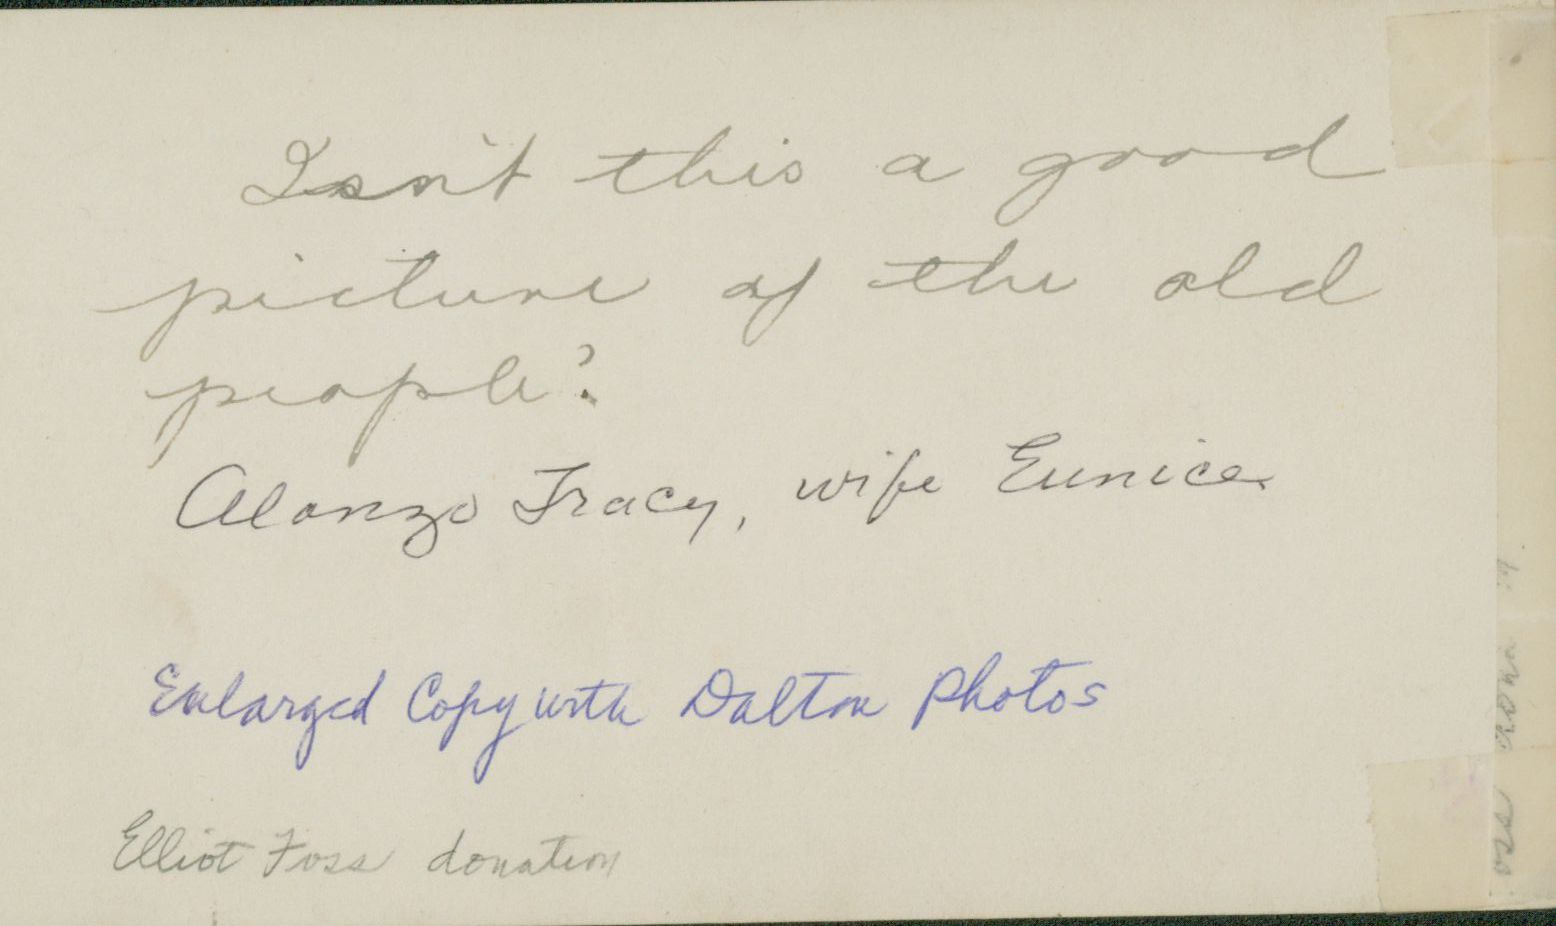 Isn't this a good
picture of the old
people?
Alonzo Tracy, wife Eunice
Enlarged Copy with Dalton Photos
Elliot Foss donation